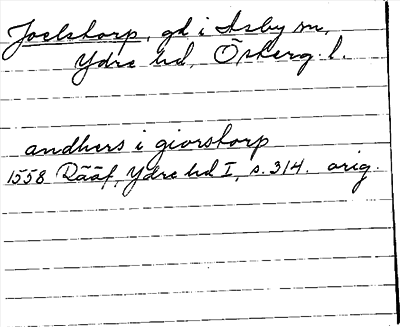 Joelstorp, gd i Asby sn,
Ydre hd, Östergl.
andhers i giorstorp
1558 Rääf, Ydre hd I, s. 314. orig.